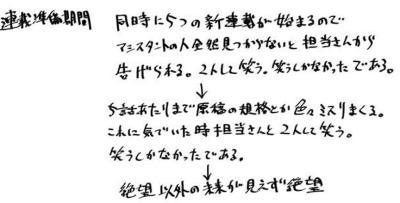 連載準備期間
同時に5つの新連載が始まるので
アシスタントの人全然見つからないと担当さんから
告げられる。2人して笑う。笑うしかなかったである。
↓
5話あたりまで原稿の規格とか色々ミスりまくる。
これに気づいた時担当さんと2人して笑う。
笑うしかなかったである。
↓
絶望以外の未来が見えず絶望